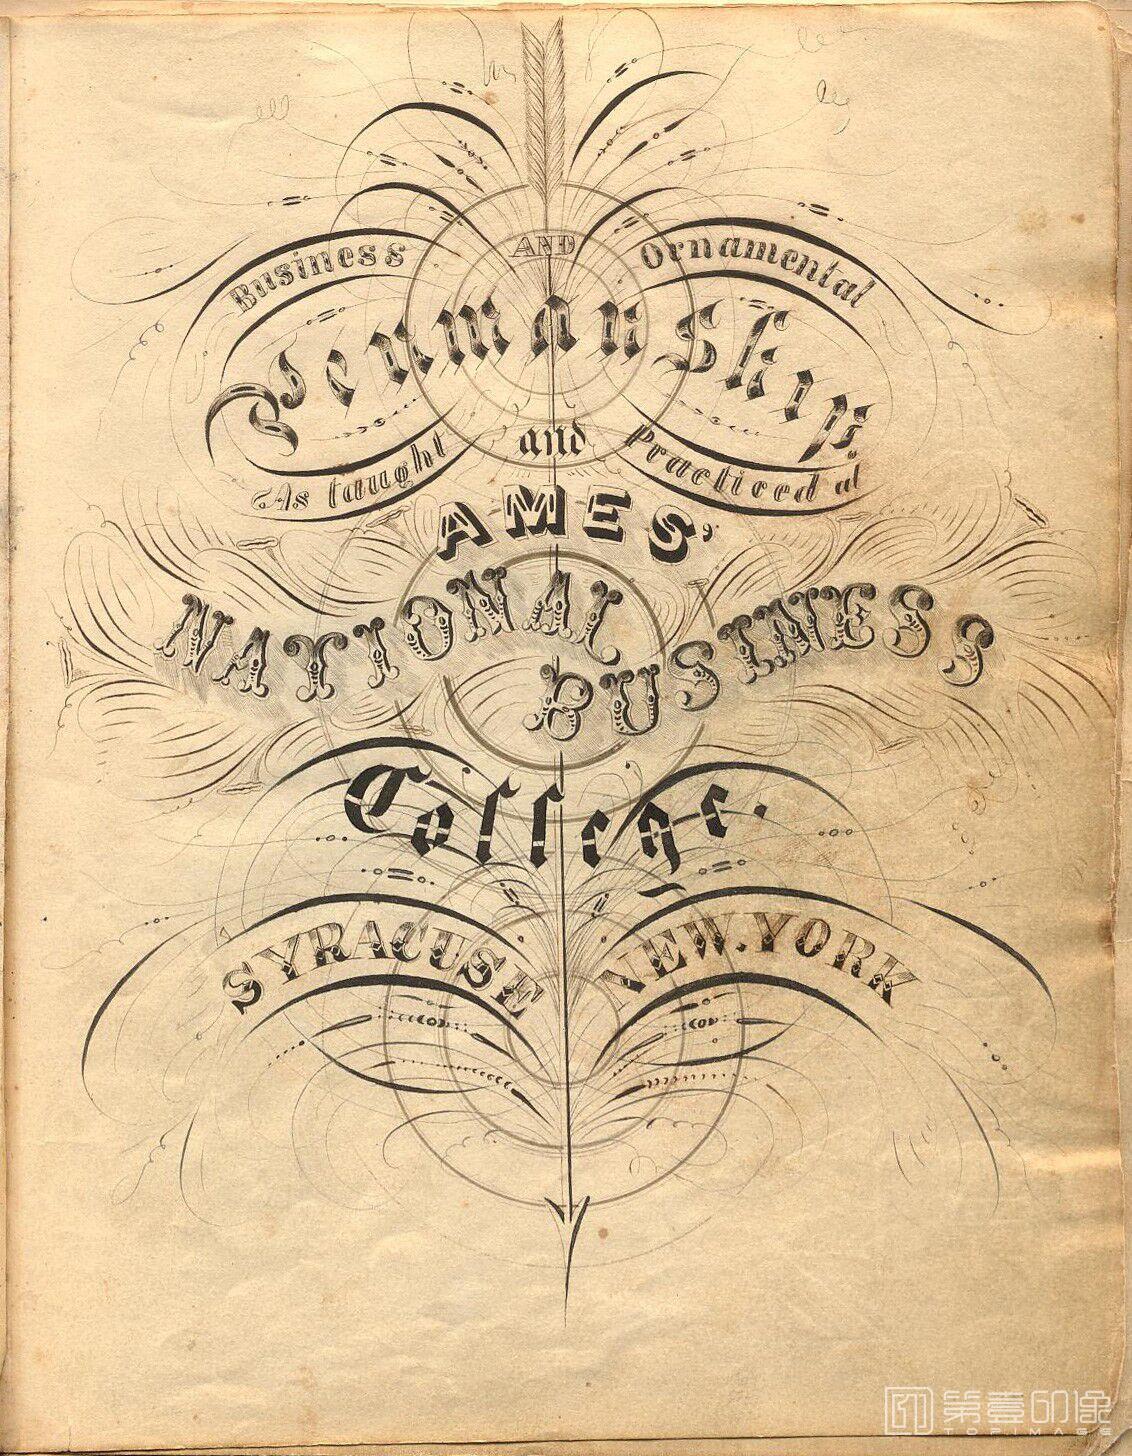 Business AND Ornamental
Penmanship.
As taught and Practiced at
AMES'
NATIONAL BUSINESS
College.
SYRACUSE NEW.YORK
第壹印像
TOPIMAGE